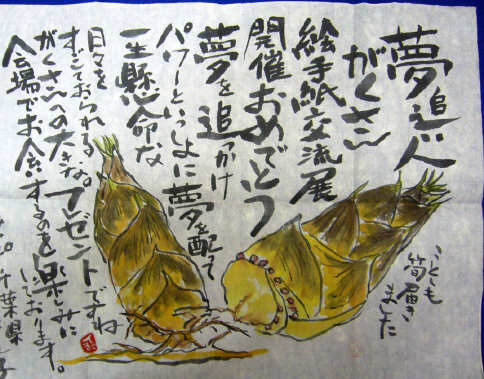 夢追い人
がくさん
絵手紙交流展
開催おめでとう
夢を追っかけ
パワーといっしょに夢を配って
一生懸命な
日々を
すごしておられる
がくさんへの大きなプレゼントですね
会場でお会いするのを楽しみに
しております。
千葉県
ことしも
筍届き
ました